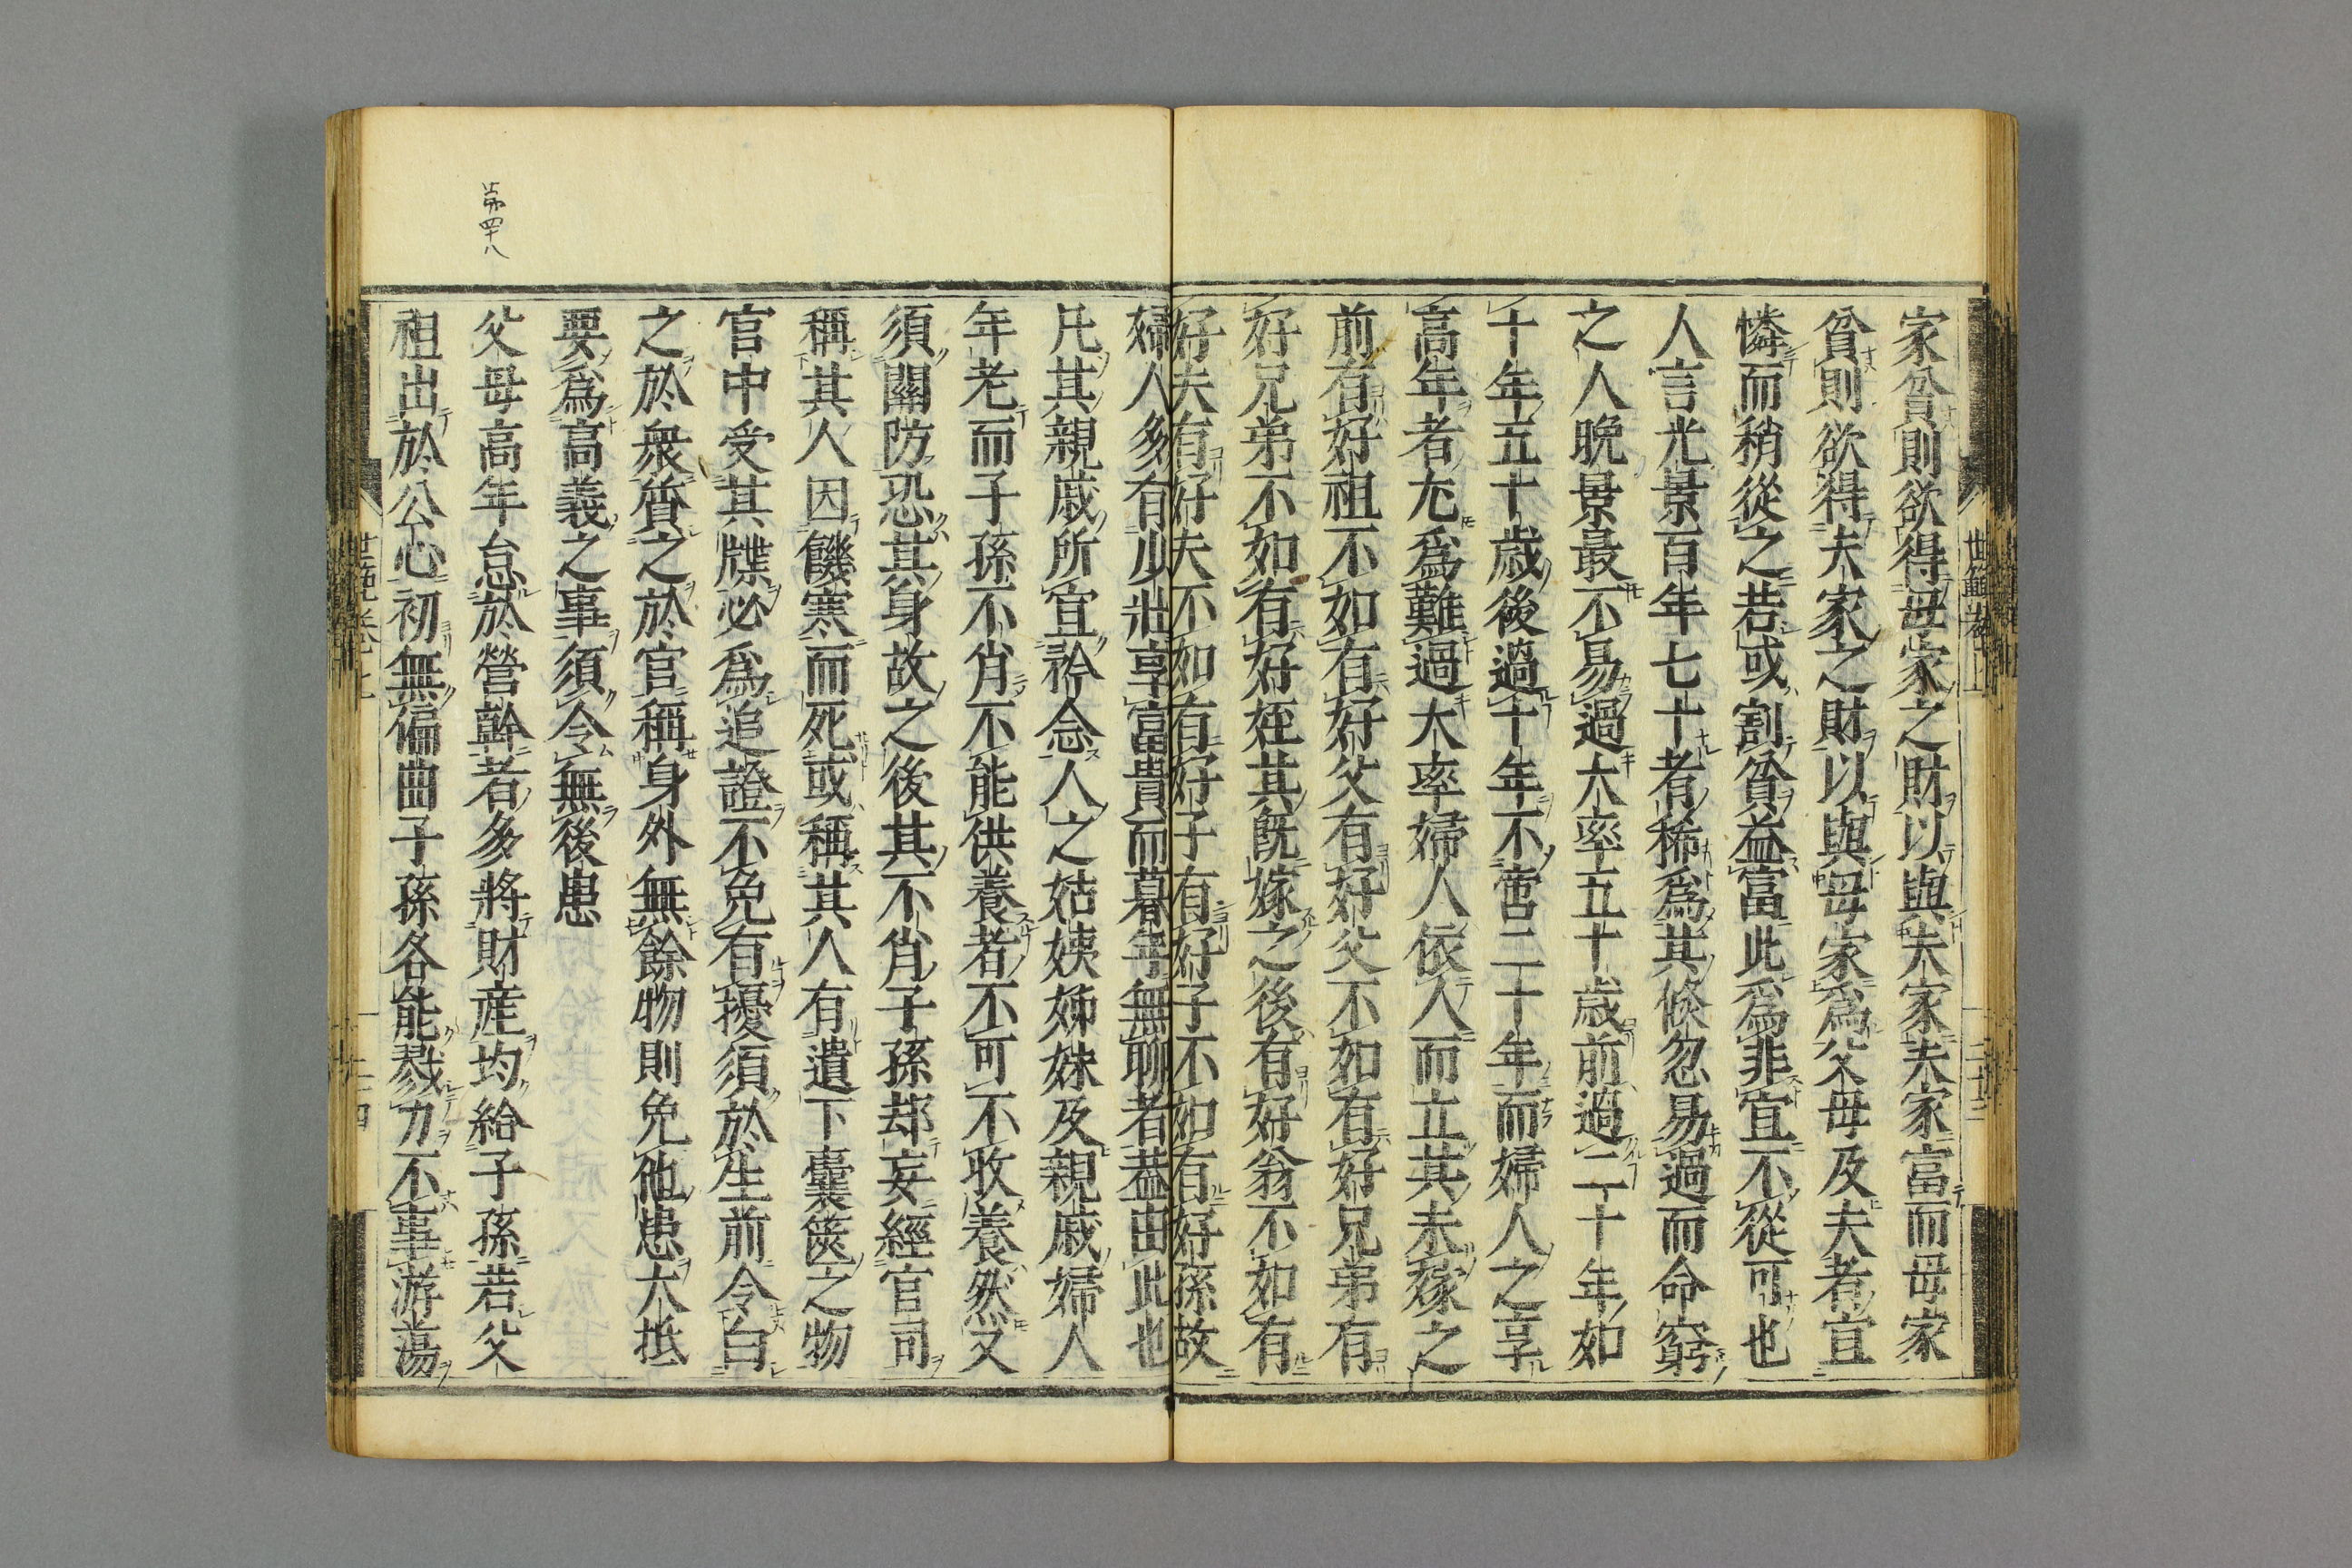 家貧則欲得母家之財以與夫家夫家富而母家
貧則欲得夫家之財以與母家爲父母及夫者宜
憐而稍從之若或割貧益富此爲非宜不從可也
人言光景百年七十者稀爲其倐忽易過而命窮
之人晩景最不易過大率五十歳前過二十年如
十年五十歳後過十年不啻二十年而婦人之享
高年者尤爲難過大率婦人依人而立其未嫁之
前有好祖不如有好父有好父不如有好兄弟有
好兄弟不如有好姪其旣嫁之後有好翁不如有
好夫有好夫不如有好子有好子不如有好孫故
婦人多有少壯享富貴而暮年無聊者葢由此也
凡其親戚所宜矜念人之姑姨姊妹及親戚婦人
年老而子孫不肖不能供養者不可不收養然又
須關防恐其身故之後其不肖子孫却妄經官司
稱其人因饑寒而死或稱其人有遺下囊篋之物
官中受其牒必爲追證不免有擾須於生前令白
之於衆質之於官稱身外無餘物則免他患大抵
要爲高義之事須令無後患
第四十八
父母高年怠於營幹者多將財産均給子孫若父
祖出於公心初無偏曲子孫各能戮力不事游蕩